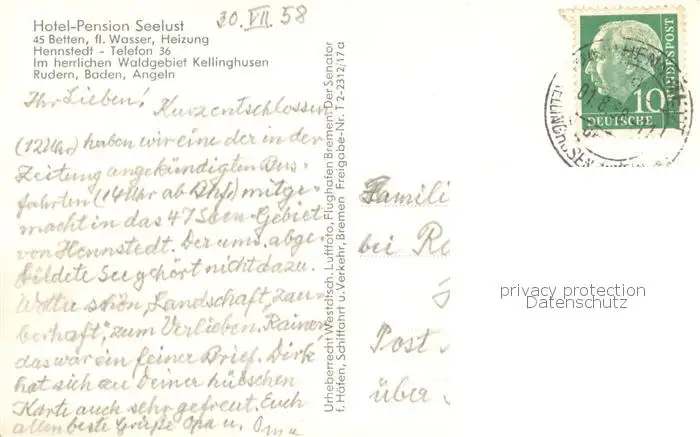 30. VII. 58
Hotel-Pension Seelust
45 Betten, fl. Wasser, Heizung
Hennstedt - Telefon 36
Im herrlichen Waldgebiet Kellinghusen
Rudern, Baden, Angeln
Ihr Lieben! Kurzentschlossen
(12 Uhr) haben wir eine der in der
Zeitung angekündigten Bus-
fahrten (14 Uhr ab Bhf.) mitge-
macht in das 47 Seen-Gebiet
von Hennstedt. Der ums. abge-
bildete See gehört nicht dazu.
schön, Landschaft, „zau-
berhaft", zum Verlieben. Rainer,
das war ein feiner Brief. Dirk
hat sich zu Deiner hübschen
Karte auch sehr gefreut. Euch
allen beste Grüße Opa u. Oma
Urheberrecht Westdtsch. Luftfoto, Flughafen Bremen. Der Senator
f. Häfen, Schiffahrt u. Verkehr, Bremen Freigabe-Nr. T 2-2312/17 a
BUNDESPOST
10
DEUTSCHE
Famili
bei Ro
Post
über
privacy protection
Datenschutz